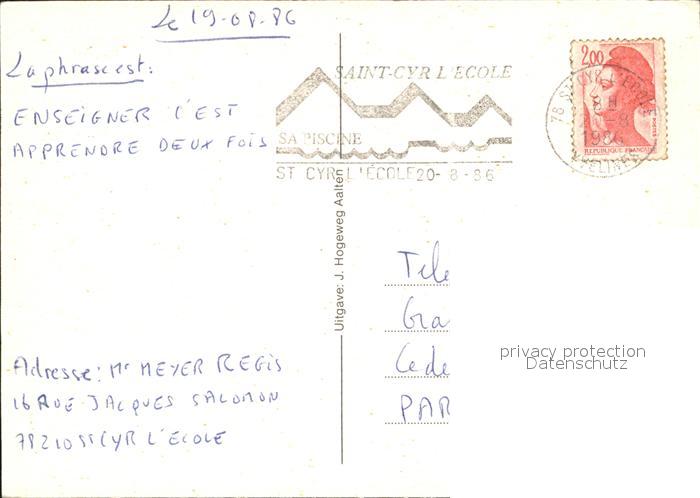 Le 19-08-86
La phrase est:
ENSEIGNER C'EST
APPRENDRE DEUX FOIS
Adresse: Mr MEYER REGIS
16 RUE JACQUES SALOMON
78210 ST CYR L'ECOLE
Uitgave: J. Hogeweg Aalten
SAINT-CYR L'ECOLE
SA PISCINE
ST CYR L'ÉCOLE 20-8-86
2,00
REPUBLIQUE FRANÇAISE
78 ST CYR L'ECOLE
8H
1986
YVELINES
Tele
Gra
Cede
PAR
privacy protection
Datenschutz